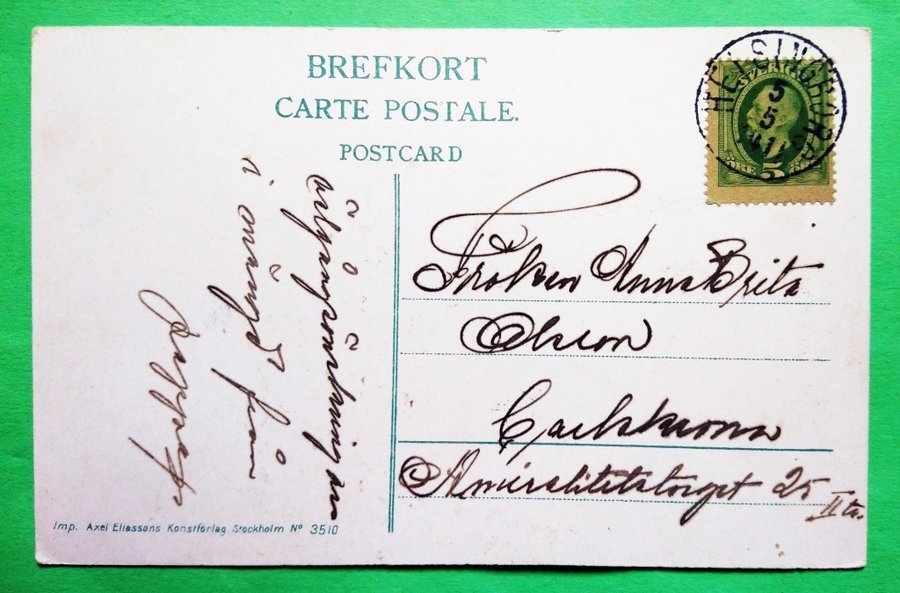 BREFKORT
CARTE POSTALE.
POSTCARD
HELSINGBORG
3
5
11
SVERIGE
5
Fröken Anna Brita
Olsson
Carlskrona
Amiralitetstorget 25
II tr.
i mängd från
Imp. Axel Eliassons Konstförlag Stockholm Nº 3510